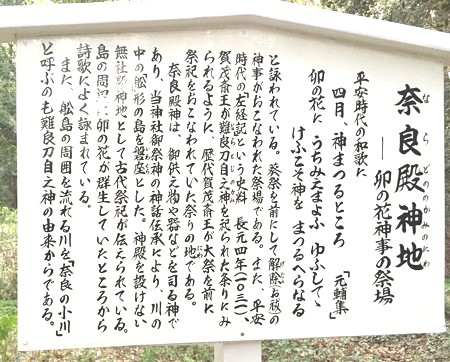 奈良殿神地
ならどののかみのにわ
―卯の花神事の祭場
平安時代の和歌に
四月、神まつるところ 「元輔集」
卯の花に うちみえまよふ ゆふしでゝ
けふこそ神を まつるへらなる
と詠われている。葵祭を前にして解除お祓の
げじょ
神事がおこなわれた祭場である。また、平安
時代の『左経記』という史料 長元四年(一〇三一)、
賀茂斎王が難良刀自之神を祀られた条りにみ
ならとじのかみ
られるように、歴代賀茂斎王が大祭を前に
祭祀をおこなわれていた祭りの地である。
奈良殿神は、御供え物や器などを司る神で
あり、当神社御祭神の神話伝承により、川の
中の舩形の島を磐座とした。神殿を設けない
無社殿神地として古代祭祀が伝えられている。
島の周辺に卯の花が群生していたところから
詩歌によく詠まれている。
また、舩島の周囲を流れる川を「奈良の小川」
と呼ぶのも難良刀自之神の由来からである。